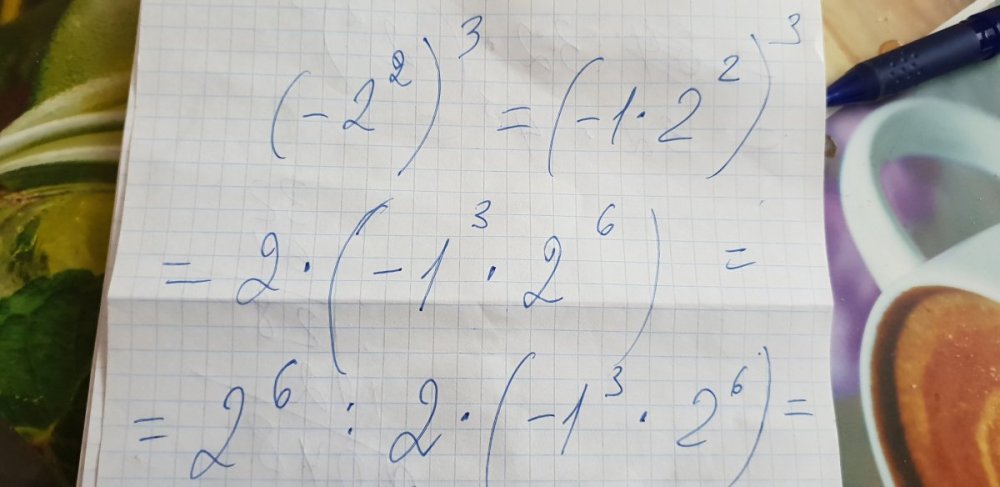 (-2²)³ = (-1·2²)³
= 2·(-1³·2⁶) =
= 2⁶ : 2·(-1³·2⁶) =